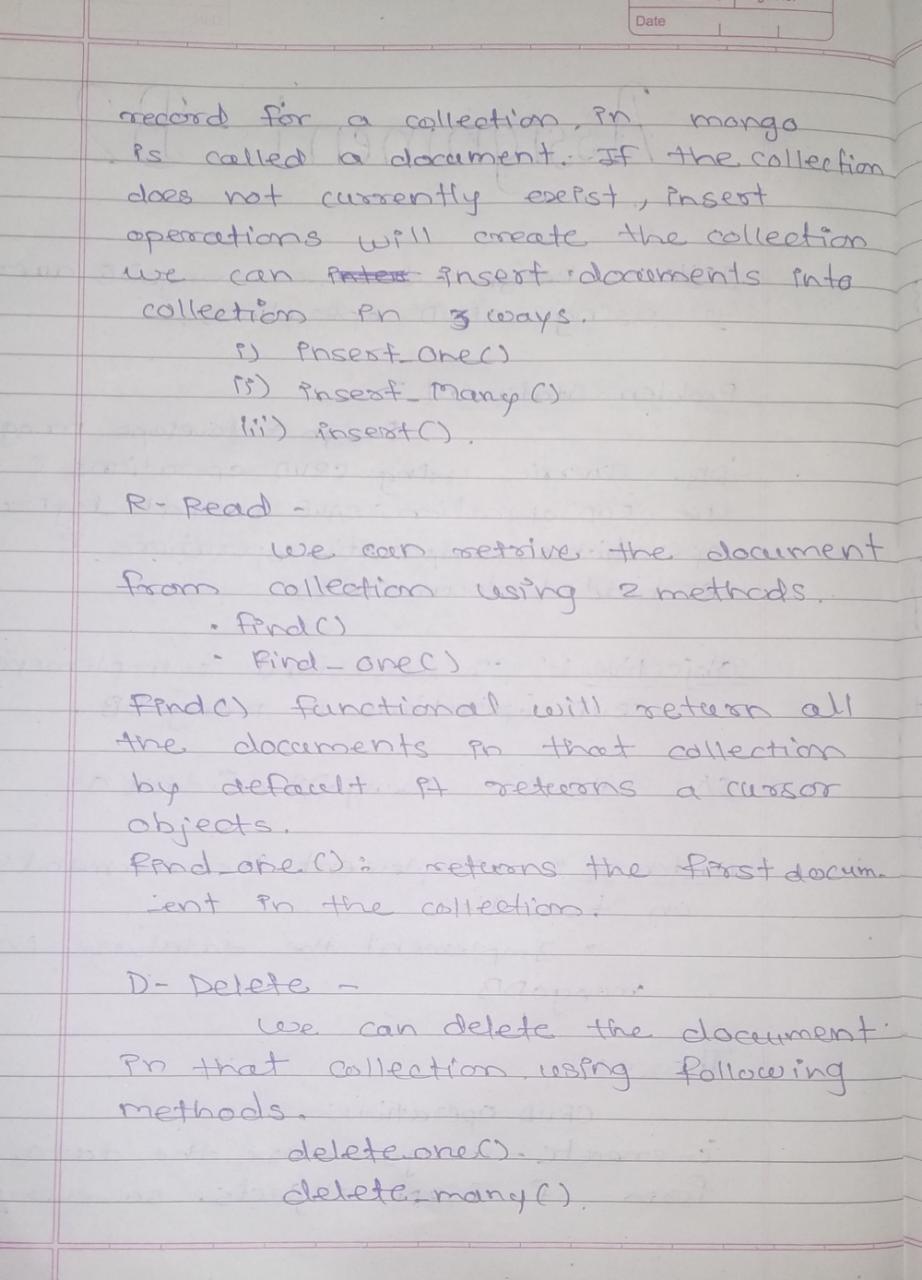 Date
record for a collection in mongo
is called a document. If the collection
does not currently exist, insert
operations will create the collection
we can insert documents into
collection in 3 ways.
i) insert_One()
ii) insert_Many()
iii) insert().
R - Read -
we can retrive the document
from collection using 2 methods.
• find()
• Find_one()
Find() functional will return all
the documents in that collection
by default it returns a cursor
objects.
find_one(): returns the first docum-
ent in the collection.
D - Delete -
we can delete the document
in that collection using following
methods.
delete_one().
delete_many().